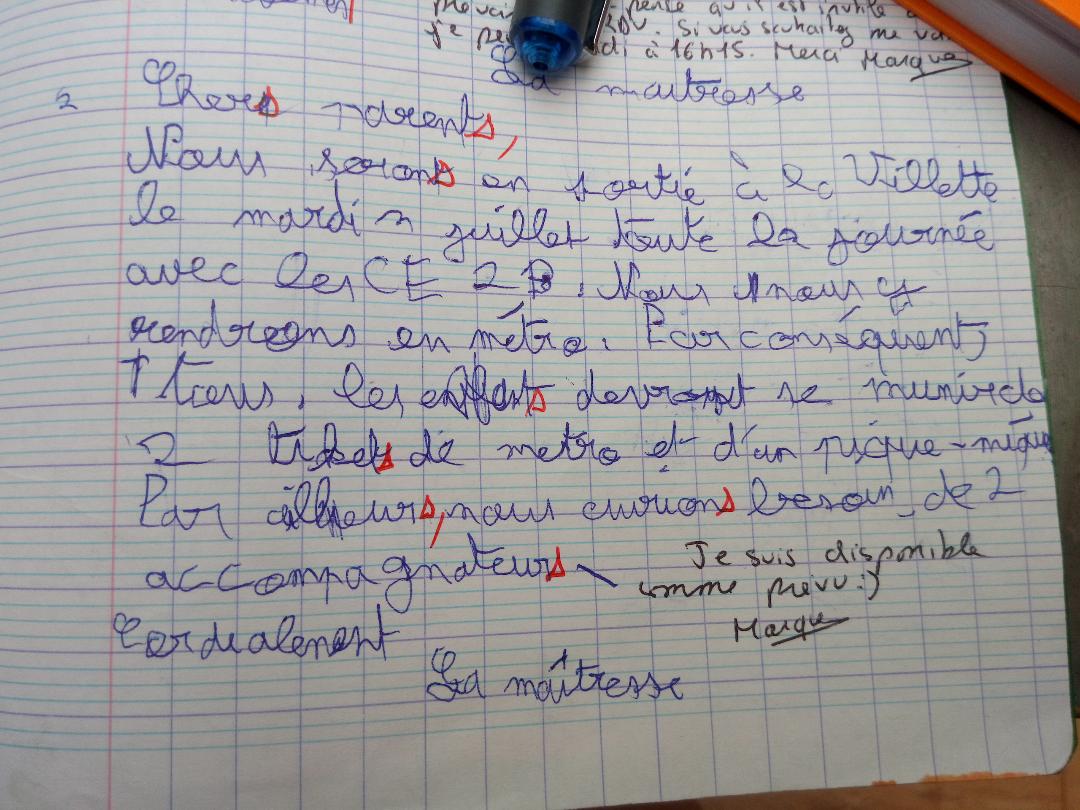 pense qu'il est inutile
je RDV. Si vous souhaitez me
di à 16h15. Merci Marque
La maitresse
Chers parents,
Nous serons en sortie à la Villette
le mardi 2 juillet toute la journée
avec les CE2B. Nous nous y
rendrons en métro. Par conséquent,
Tiens, les enfants devront se munir de
2 tickets de metro et d'un pique-nique
Par ailleurs, nous aurions besoin de 2
accompagnateurs
Je suis disponible
comme prévu :)
Marque
Cordialement
La maîtresse